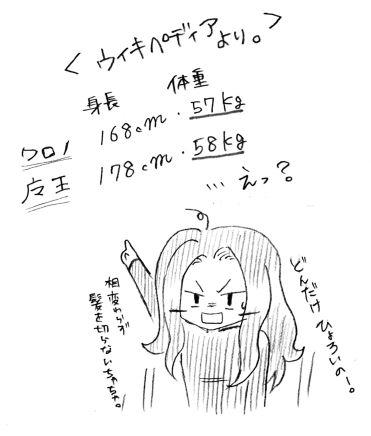 ＜ウィキペディアより。
身長 体重
クロノ 168cm・57kg
魔王 178cm・58kg
…えっ？
どんだけひょろいの！。
相変わらず
髪を切らないちゃちゃ。